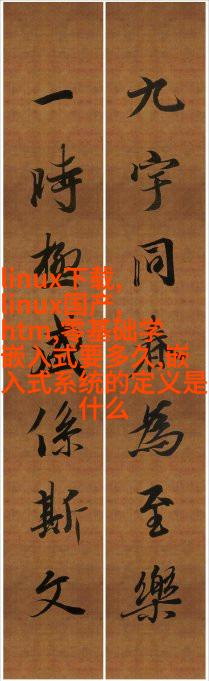 九宇同春為至樂
一時極係斯文
linux下载,
linux国产,
htm,零基础学
嵌入式要多久,嵌
入式系统的定义是
什么